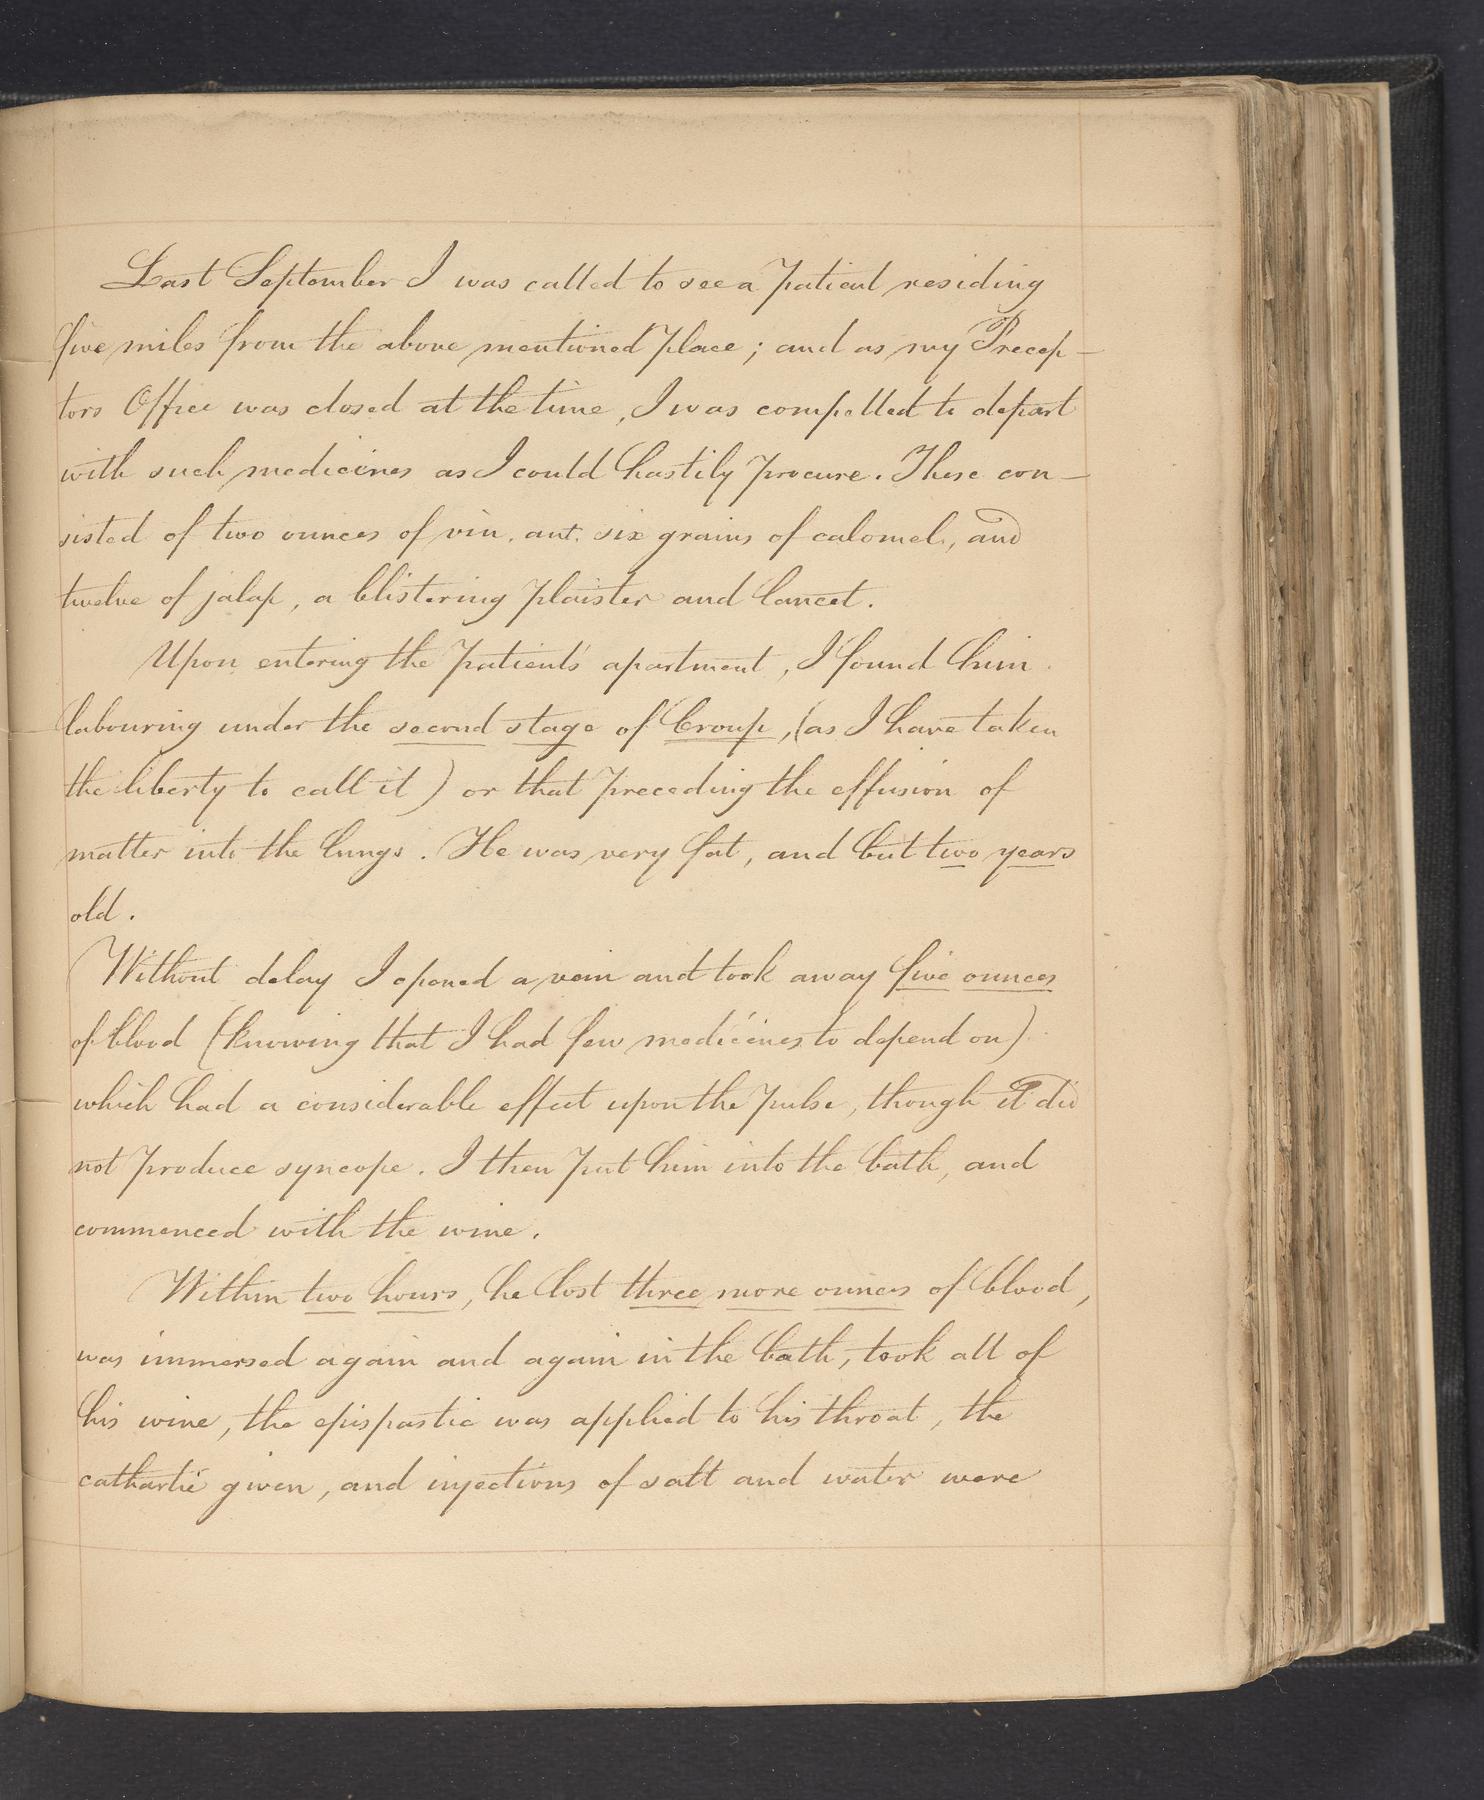 Last September I was called to see a patient residing
five miles from the above mentioned place; and as my Precep-
tors Office was closed at the time, I was compelled to depart
with such medicines as I could hastily procure. These con-
sisted of two ounces of vin. ant. six grains of calomel, and
twelve of jalap, a blistering plaister and lancet.
Upon entering the patient's apartment, I found him
labouring under the second stage of Croup, (as I have taken
the liberty to call it) or that preceding the effusion of
matter into the lungs. He was very fat, and but two years
old.
Without delay I opened a vein and took away five ounces
of blood (knowing that I had few medicines to depend on)
which had a considerable effect upon the pulse, though it did
not produce syncope. I then put him into the bath, and
commenced with the wine.
Within two hours, he lost three more ounces of blood,
was immersed again and again in the bath, took all of
his wine, the epispastic was applied to his throat, the
cathartic given, and injections of salt and water were